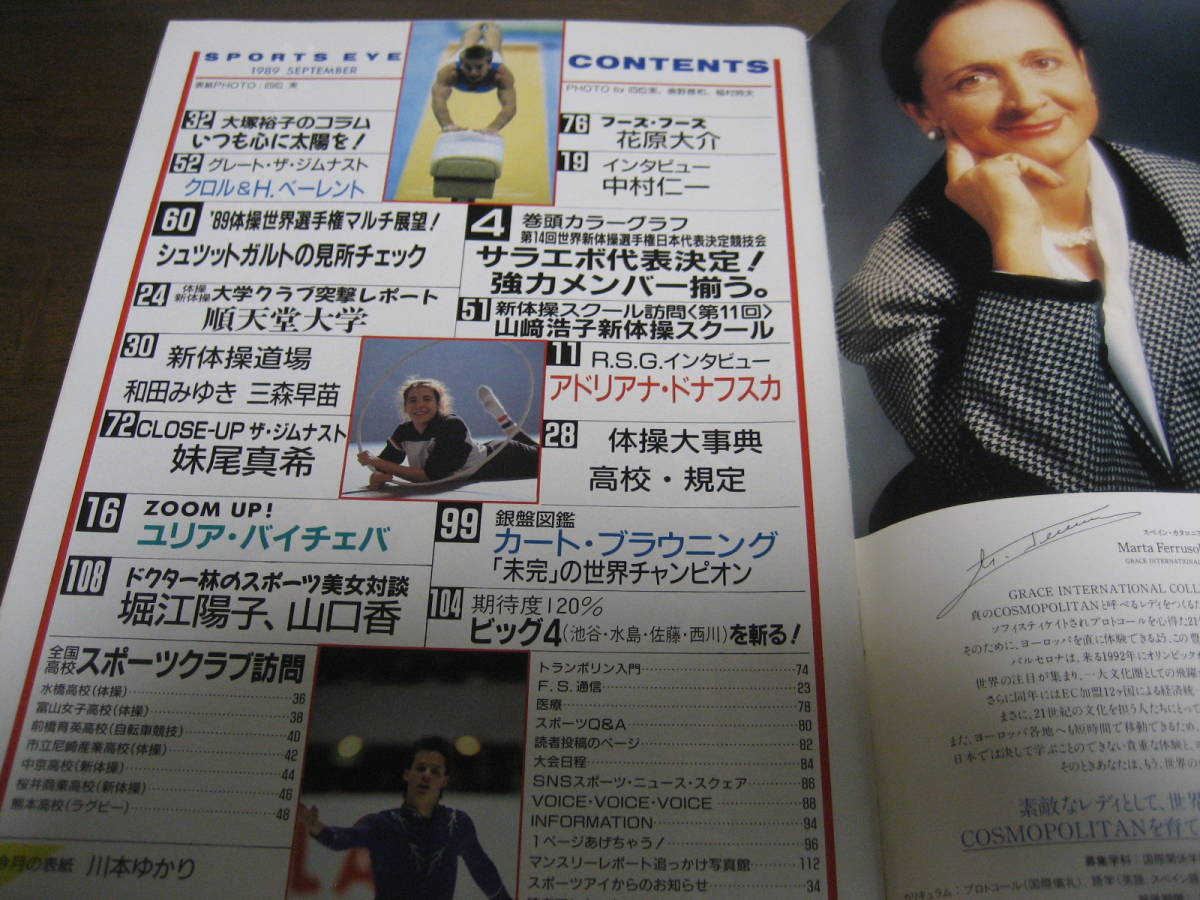 SPORTS EYE
1989 SEPTEMBER
CONTENTS
表紙PHOTO:四位 実
32 大塚裕子のコラム
いつも心に太陽を!
52 グレート・ザ・ジムナスト
クロル&H.ベーレント
76 フーズ・フーズ
花原大介
19 インタビュー
中村仁一
60 '89体操世界選手権マルチ展望!
シュツットガルトの見所チェック
4 巻頭カラーグラフ
第14回世界新体操選手権日本代表決定競技会
サラエボ代表決定!
強力メンバー揃う。
24 体操 新体操 大学クラブ突撃レポート
順天堂大学
51 新体操スクール訪問〈第11回〉
山﨑浩子新体操スクール
30 新体操道場
和田みゆき 三森早苗
11 R.S.G.インタビュー
アドリアナ・ドナフスカ
72 CLOSE-UP ザ・ジムナスト
妹尾真希
28 体操大事典
高校・規定
16 ZOOM UP!
ユリア・バイチェバ
99 銀盤図鑑
カート・ブラウニング
「未完」の世界チャンピオン
108 ドクター林のスポーツ美女対談
堀江陽子、山口香
104 期待度120%
ビッグ4(池谷・水島・佐藤・西川)を斬る!
全国高校スポーツクラブ訪問
水橋高校(体操) 36
富山女子高校(体操) 38
前橋育英高校(自転車競技) 40
市立尼崎産業高校(体操) 42
中京高校(新体操) 44
桜井商業高校(新体操) 46
熊本高校(ラグビー) 48
今月の表紙 川本ゆかり
トランポリン入門 74
F.S.通信 23
医療 78
スポーツQ&A 80
読者投稿のページ 82
大会日程 84
SNSスポーツ・ニュース・スクェア 86
VOICE・VOICE・VOICE 88
INFORMATION 94
1ページあげちゃう! 96
マンスリーレポート追っかけ写真館 112
スポーツアイからのお知らせ 34
スペイン・カタロニア
Marta Ferruso
GRACE INTERNATIONAL
GRACE INTERNATIONAL COLL
真のCOSMOPOLITANと呼べるレディをつくるた
ソフィスティケイトされプロトコールを心得た21
そのために、ヨーロッパを直に体験できるよう、この
バルセロナは、来る1992年にオリンピックが
世界の注目が集まり、一大文化圏としての飛躍
さらに同年にはEC加盟12ヶ国による経済統
まさに、21世紀の文化を担う人たちにとって
また、ヨーロッパ各地へも短時間で移動できるため、
日本では決して学ぶことのできない貴重な体験と、
そのときあなたは、もう、世界の
素敵なレディとして、世界
COSMOPOLITANを育て
募集学科:国際関係学
カリキュラム:プロトコール(国際儀礼)、語学(英語、スペイン語